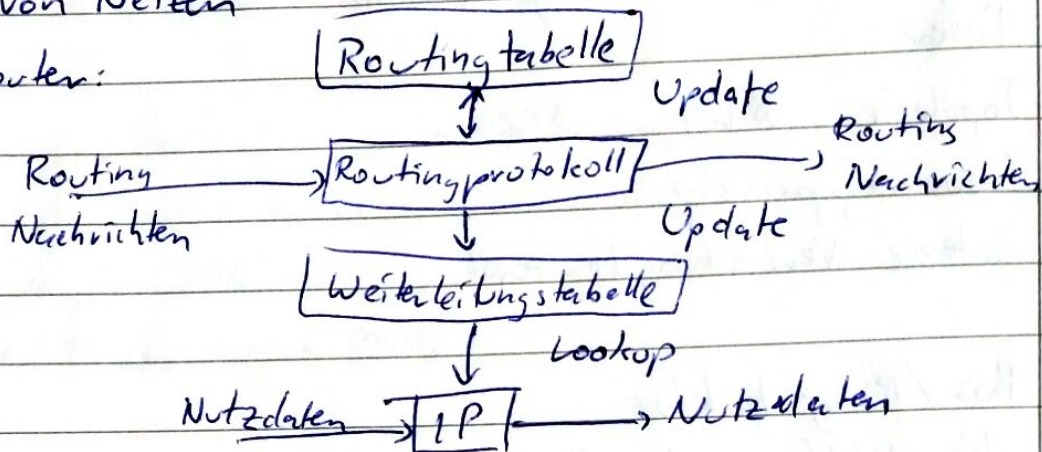 von Netzen
Routingtabelle
Update
Routing
Nachrichten
Routing
Routingprotokoll
Nachrichten
Update
Weiterleitungstabelle
Lookup
Nutzdaten
IP
Nutzdaten